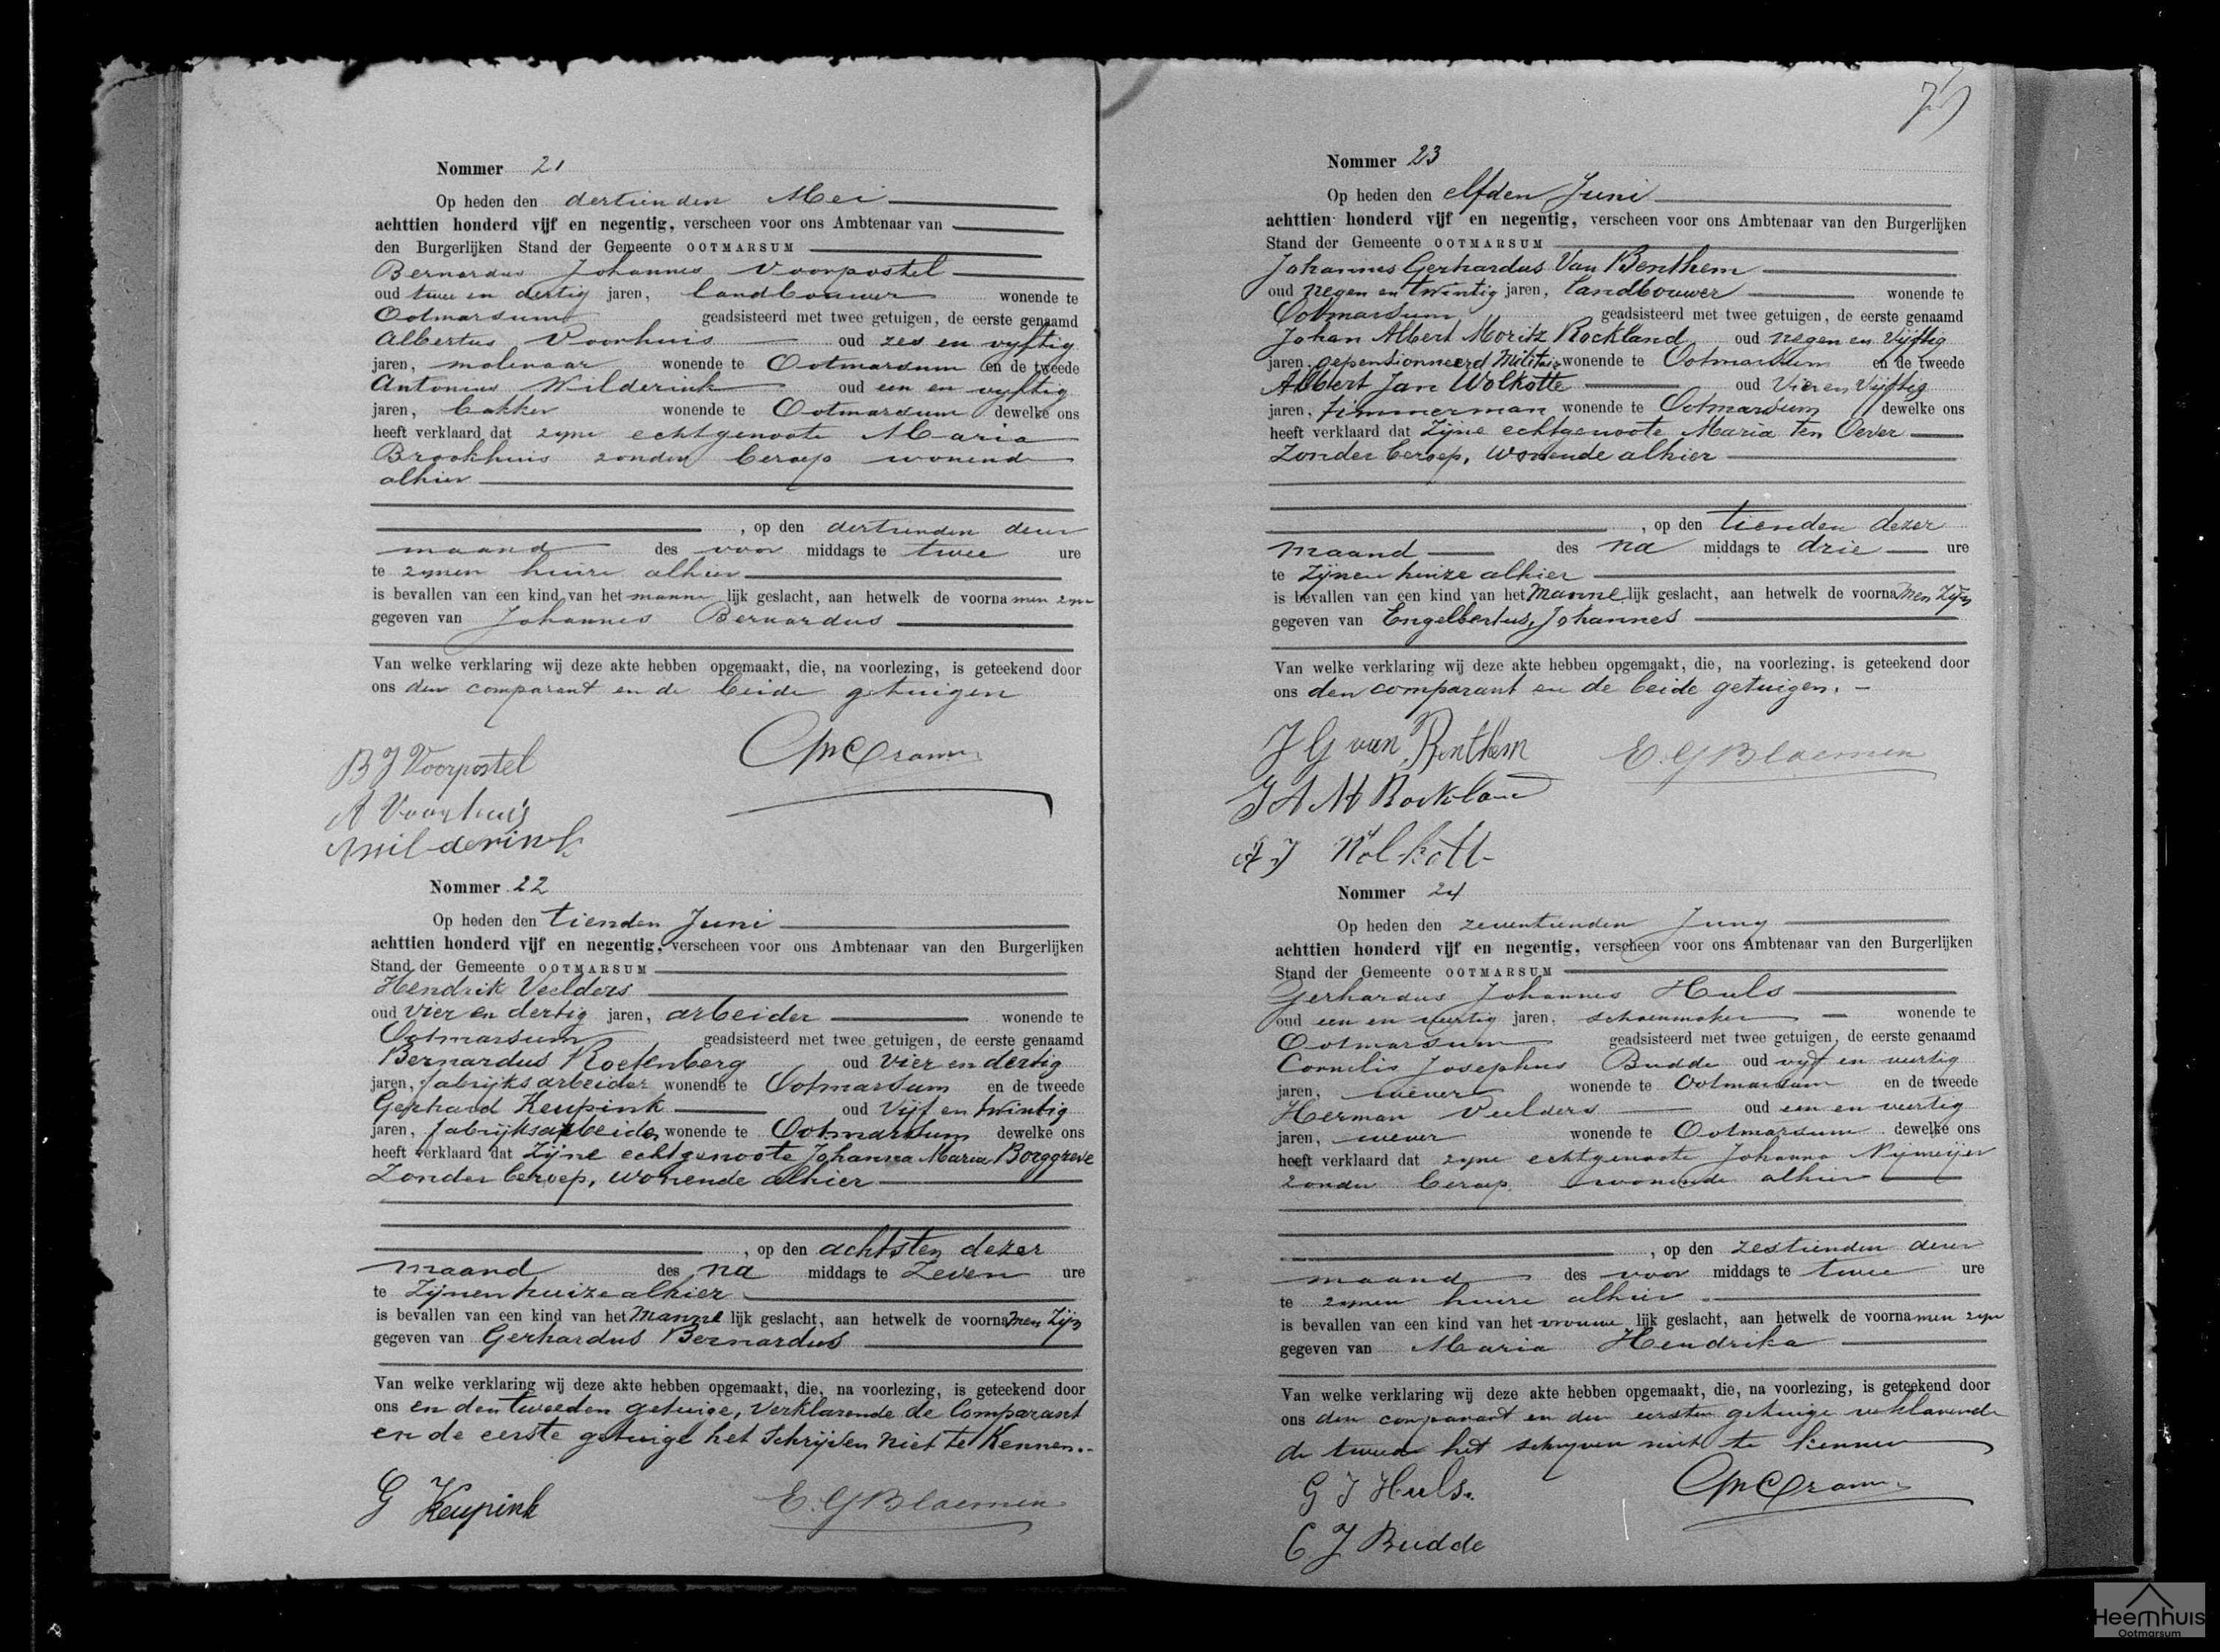 Nommer 21
Op heden den dertienden Mei
achttien honderd vijf en negentig, verscheen voor ons Ambtenaar van
den Burgerlijken Stand der Gemeente OOTMARSUM
Bernardus Johannes Voorpostel
oud twee en dertig jaren, landbouwer wonende te
Ootmarsum geadsisteerd met twee getuigen, de eerste genaamd
Albertus Voorhuis oud zes en vyftig
jaren, molenaar wonende te Ootmarsum en de tweede
Antonius Wilderink oud een en vyftig
jaren, bakker wonende te Ootmarsum dewelke ons
heeft verklaard dat zyne echtgenoote Maria
Brookhuis zonder beroep wonende
alhier
, op den dertienden dezer
maand des voor middags te twee ure
te zynen huize alhier
is bevallen van een kind van het manne lijk geslacht, aan hetwelk de voorna men zyn
gegeven van Johannes Bernardus
Van welke verklaring wij deze akte hebben opgemaakt, die, na voorlezing, is geteekend door
ons den comparant en de beide getuigen
B J Voorpostel
A Voorhuis
A Wilderink
Nommer 22
Op heden den tienden Juni
achttien honderd vijf en negentig, verscheen voor ons Ambtenaar van den Burgerlijken
Stand der Gemeente OOTMARSUM
Hendrik Veelders
oud vier en dertig jaren, arbeider wonende te
Ootmarsum geadsisteerd met twee getuigen, de eerste genaamd
Bernardus Roetenberg oud vier en dertig
jaren, fabrijksarbeider wonende te Ootmarsum en de tweede
Gerhard Keupink oud Vijf en twintig
jaren, fabrijksarbeider wonende te Ootmarsum dewelke ons
heeft verklaard dat Zijne echtgenoote Johanna Maria Borggreve
Zonder beroep, wonende alhier
, op den achtsten dezer
maand des na middags te Zeven ure
te Zijnen huize alhier
is bevallen van een kind van het Manne lijk geslacht, aan hetwelk de voorna men Zijn
gegeven van Gerhardus Bernardus
Van welke verklaring wij deze akte hebben opgemaakt, die, na voorlezing, is geteekend door
ons en den tweeden getuige, verklarende de Comparant
en de eerste getuige het Schrijven niet te Kennen.
G Keupink E. G Blaemen
Nommer 23
Op heden den elfden Juni
achttien honderd vijf en negentig, verscheen voor ons Ambtenaar van den Burgerlijken
Stand der Gemeente OOTMARSUM
Johannes Gerhardus Van Benthem
oud negen en twintig jaren, landbouwer wonende te
Ootmarsum geadsisteerd met twee getuigen, de eerste genaamd
Johan Albert Moritz Rockland oud negen en Vijftig
jaren, gepensionneerd Militair wonende te Ootmarsum en de tweede
Albert Jan Wolkotte oud Vier en Vijftig
jaren, Timmerman wonende te Ootmarsum dewelke ons
heeft verklaard dat Zijne echtgenoote Maria ten Oever
Zonder beroep, wonende alhier
, op den tienden dezer
maand des na middags te drie ure
te Zijnen huize alhier
is bevallen van een kind van het Manne lijk geslacht, aan hetwelk de voorna men Zijn
gegeven van Engelbertus, Johannes
Van welke verklaring wij deze akte hebben opgemaakt, die, na voorlezing, is geteekend door
ons den comparant en de beide getuigen. -
J G van Benthem E. G Blaemen
J A M Rockland
A J Wolkott
Nommer 24
Op heden den zeventienden Juny
achttien honderd vijf en negentig, verscheen voor ons Ambtenaar van den Burgerlijken
Stand der Gemeente OOTMARSUM
Gerhardus Johannes Huls
oud een en veertig jaren, schoenmaker wonende te
Ootmarsum geadsisteerd met twee getuigen, de eerste genaamd
Cornelis Josephus Budde oud vyf en veertig
jaren, wever wonende te Ootmarsum en de tweede
Herman Veelders oud een en veertig
jaren, wever wonende te Ootmarsum dewelke ons
heeft verklaard dat zyne echtgenoote Johanna Nijmeijer
zonder beroep wonende alhier
, op den zestienden dezer
maand des voor middags te twee ure
te zynen huize alhier
is bevallen van een kind van het vrouwe lijk geslacht, aan hetwelk de voorna men zyn
gegeven van Maria Hendrika
Van welke verklaring wij deze akte hebben opgemaakt, die, na voorlezing, is geteekend door
ons den comparant en den eersten getuige verklarende
de tweede het schryven niet te kennen
G J Huls.
C J Budde
Heemhuis
Ootmarsum